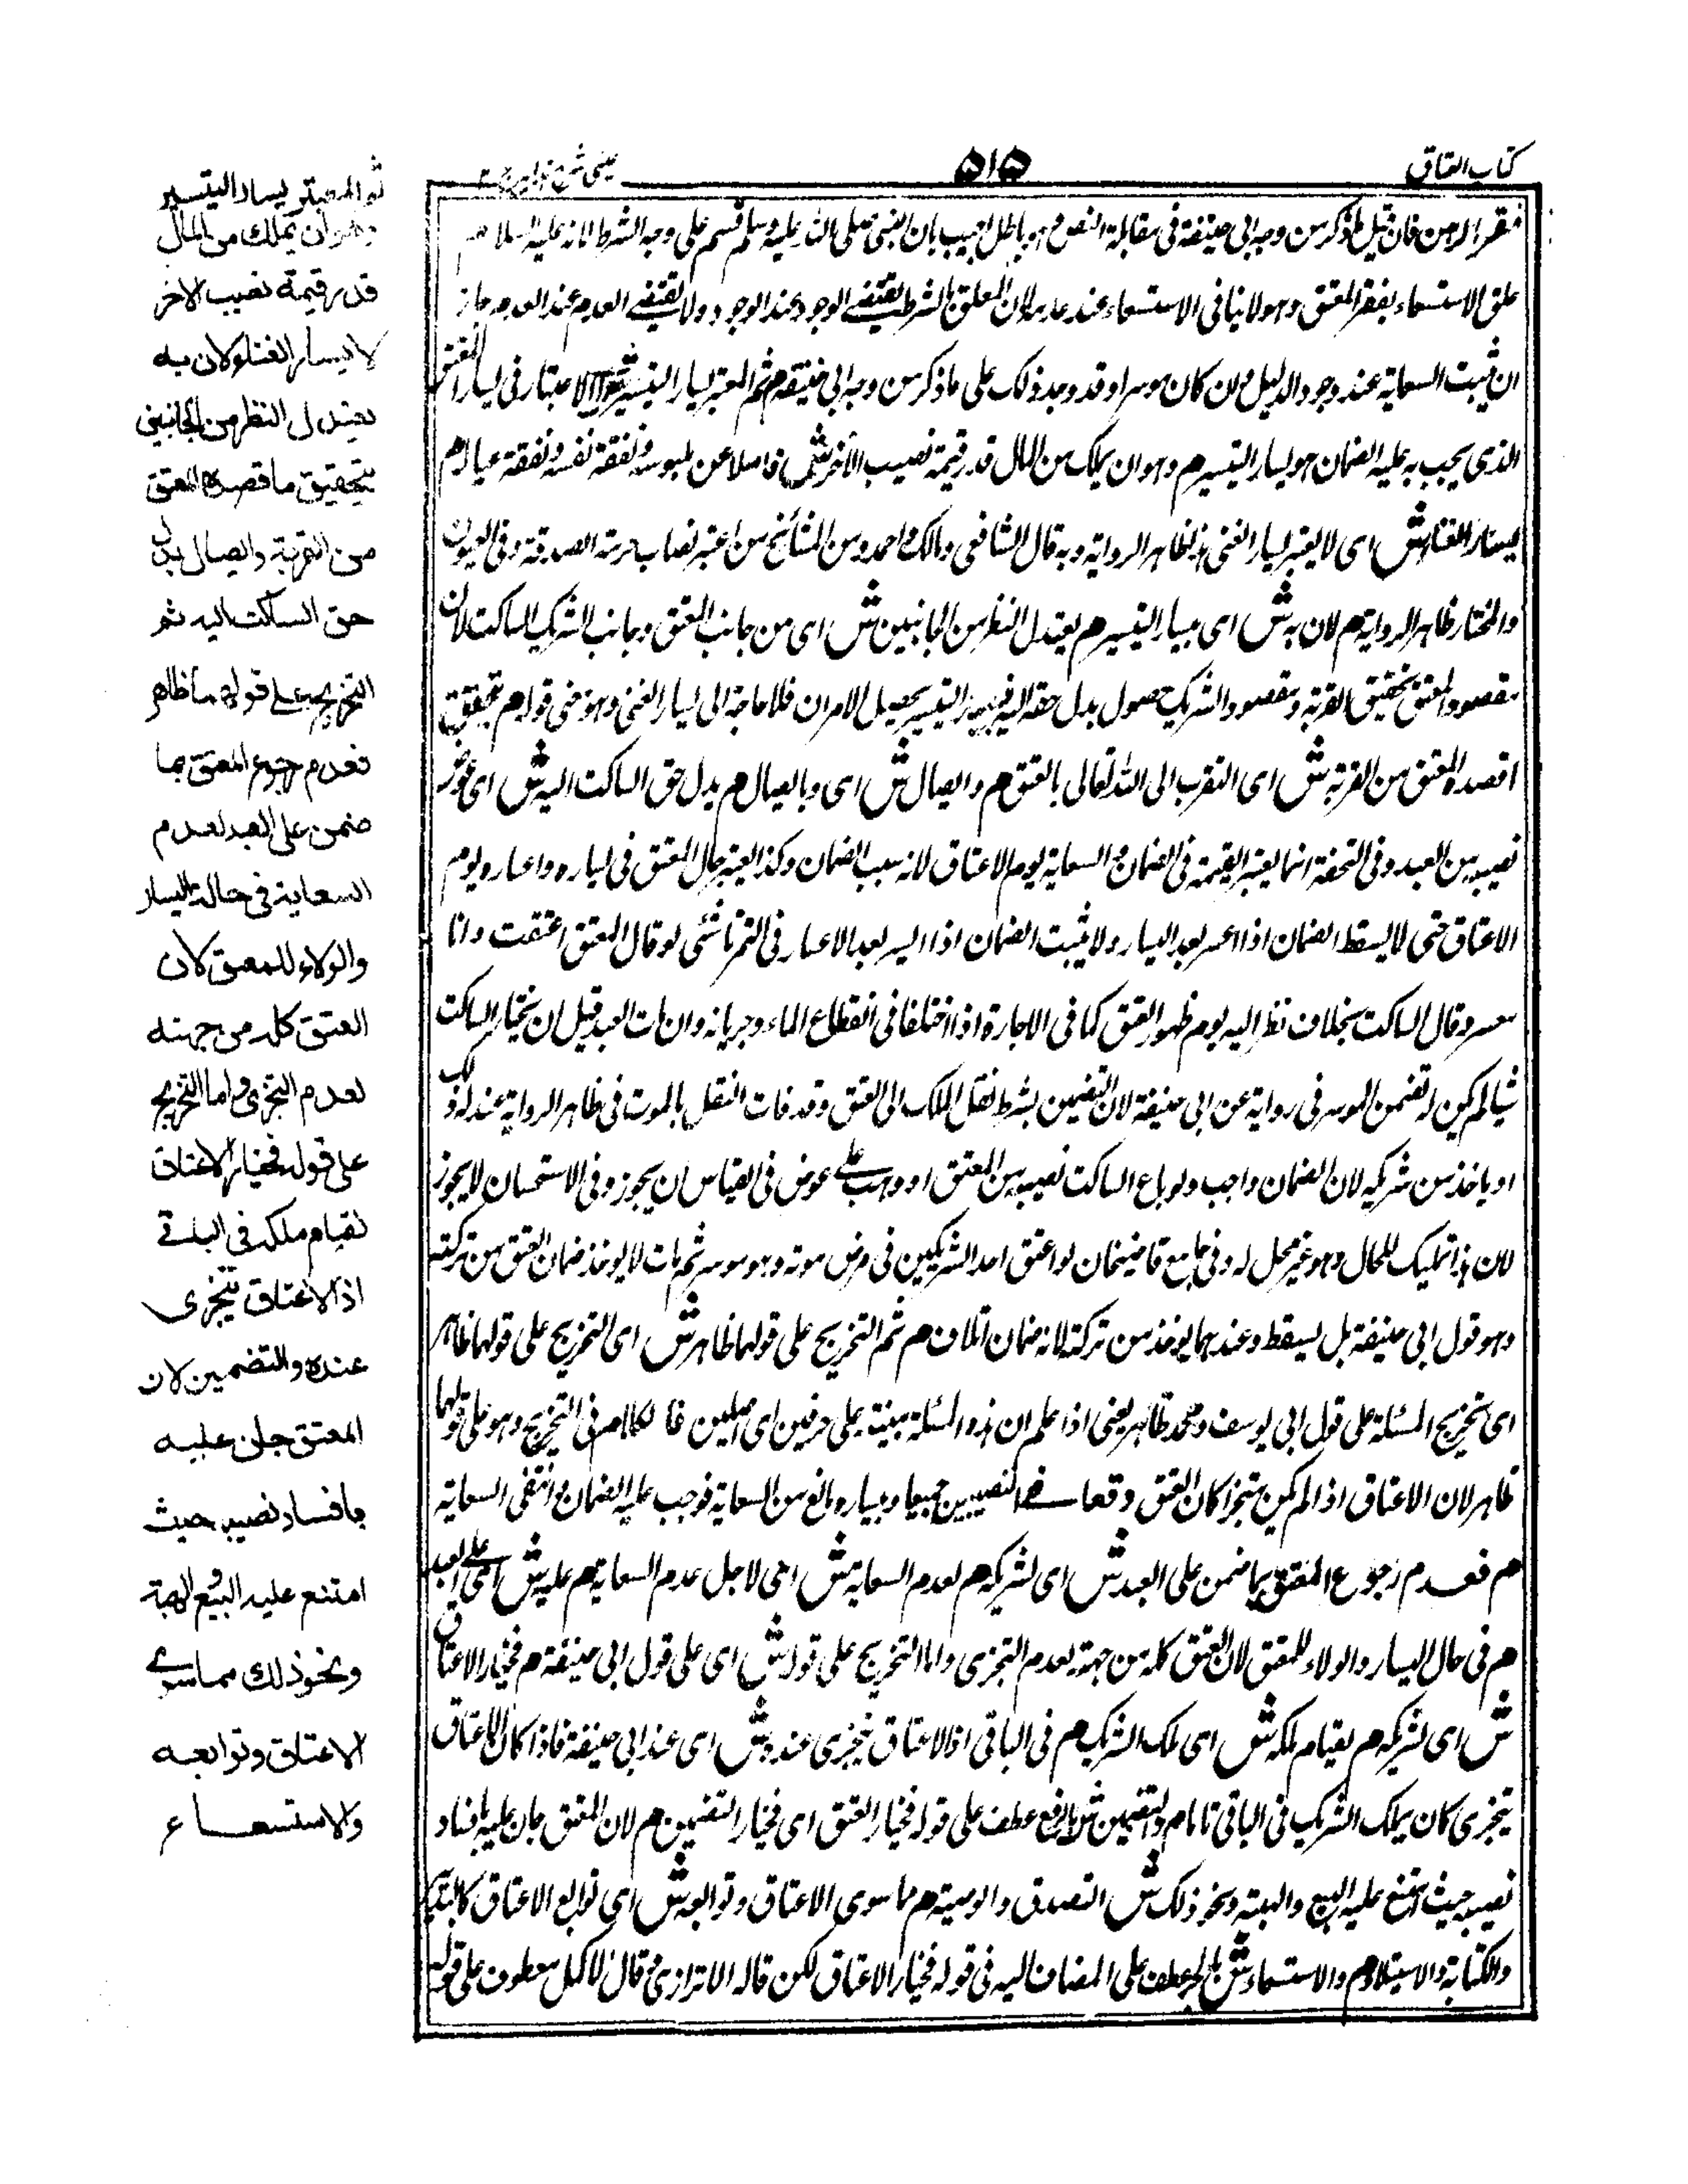 كتاب العتاق
٥١٥
عینی شرح ہدایہ ج ٢
فقر الراہن فان قیل ما ذکر من وجہ ابی حنیفۃ فی مقابلۃ النص وہو باطل اجیب بان النبی صلی اللہ علیہ وسلم قسم علی وجہ الشرط لانہ علیہ السلام
علق الاستسعاء بفقر المعتق وہو لا ینافی الاستسعاء عند عدمہ لان المعلق بالشرط یقتضے الوجود عند الوجود ولا یقتضے العدم عند العدم جاز
ان یثبت السعایۃ عند وجود الدلیل وان کان موسرا وقد وجد ذلک علی ما ذکر من وجہ ابی حنیفۃ م ثم المعتبر یسار التیسیر ش الاعتبار فی یسار المعتق
الذی یجب بہ علیہ الضمان ہو یسار التیسیر م وہو ان یملک من المال قدر قیمۃ نصیب الآخر ش فاضلا عن ملبوسہ ونفقۃ نفسہ ونفقۃ عیالہ م
لا یسار الغناء ش ای لا یعتبر یسار الغنی ہذا ظاہر الروایۃ وبہ قال الشافعی ومالک واحمد ومن المشائخ من اعتبر نصاب حرمۃ الصدقۃ وفی العیون
والمختار ظاہر الروایۃ م لان بہ ش ای بیسار التیسیر م یعتدل النظر من الجانبین ش ای من جانب المعتق وجانب الشریک الساکت لان
مقصود المعتق تحقیق القربۃ ومقصود الشریک حصول بدل حقہ الیہ فبیسار التیسیر یحصیل الامران فلا حاجۃ الی یسار الغنی وہو معنی قولہ م بتحقیق
ما قصدہ المعتق من القربۃ ش ای التقرب الی اللہ تعالی بالعتق م وایصال ش ای وبایصال م بدل حق الساکت الیہ ش ای عوض
نصیبہ من العبد وفی التحفۃ انما یعتبر القیمۃ فی الضمان والسعایۃ یوم الاعتاق لانہ سبب الضمان وکذا یعتبر حال المعتق فی یسارہ واعسارہ یوم
الاعتاق حتی لا یسقط الضمان اذا اعسر بعد الیسار ولا یثبت الضمان اذا ایسر بعد الاعسار فی التمرتاشی لو قال المعتق اعتقت وانا
معسر وقال الساکت بخلاف نظر الیہ یوم ظہور العتق کما فی الاجارۃ اذا اختلفا فی انقطاع الماء وجریانہ وان مات العبد قبل ان یختار الساکت
شیئا لم یکن لہ تضمین الموسر فی روایۃ عن ابی حنیفۃ لان التضمین بشرط نقل الملک الی المعتق وقد فات النقل بالموت فی ظاہر الروایۃ عند لہ ذلک
او یاخذ من شریکہ لان الضمان واجب ولو باع الساکت نصیبہ من المعتق او وہب علی عوض فی القیاس ان یجوز وفی الاستحسان لا یجوز
لان ہذا تملیک للحال وہو غیر محل لہ وفی جامع قاضیخان لو اعتق احد الشریکین فی مرض موتہ وہو موسر ثم مات لا یوخذ ضمان العتق من ترکتہ
وہو قول ابی حنیفۃ بل یسقط وعندہما یوخذ من ترکتہ لانہ ضمان اتلاف م ثم التخریج علی قولہما ظاہر ش ای التخریج علی قولہما ظاہر
ای تخریج المسئلۃ علی قول ابی یوسف ومحمد ظاہر یعنی اذا علم ان ہذہ المسئلۃ مبنیۃ علی حرفین ای اصلین فالکلام فی التخریج وہو علی قولہما
ظاہر لان الاعتاق اذا لم یکن متجزا کان العتق وقعا فے النصیبین جمیعا ویسارہ مانع من السعایۃ فوجب علیہ الضمان وانتفی السعایۃ
م فعدم رجوع المعتق بما ضمن علی العبد ش ای لشریکہ م لعدم السعایۃ ش ای لاجل عدم السعایۃ م علیہ ش ای علی العبد
م فی حال الیسار والولاء للمعتق لان العتق کلہ من جہتہ لعدم التجزی واما التخریج علی قولہ ش ای علی قول ابی حنیفۃ م فخیار الاعتاق
ش ای لشریکہ م لقیام ملکہ ش ای ملک الشریک م فی الباقی اذ الاعتاق یتجزی عندہ ش ای عند ابی حنیفۃ فاذا کان الاعتاق
یتجزی کان یملک الشریک فی الباقی تاما م والتضمین ش بالرفع عطف علی قولہ فخیار العتق ای فخیار التضمین م لان المعتق جان علیہ بافساد
نصیبہ حیث امتنع علیہ البیع والہبۃ ونحو ذلک ش التصدق والوصیۃ م مما سوی الاعتاق وتوابعہ ش ای توابع الاعتاق کالتدبیر
والکتابۃ والاستیلاد م والاستسعاء ش بالجر عطف علی المضاف الیہ فی قولہ فخیار الاعتاق لکن قالہ الاترازی وقال الاکمل معطوف علی قولہ
ثم المعتبر يسار التيسير
وهو ان يملك من المال
قدر قيمة نصيب الاخر
لا يسار الغناء لان به
يعتدل النظر من الجانبين
بتحقيق ما قصده المعتق
من القربة وايصال بدل
حق الساكت اليه ثم
التخريج على قولهما ظاهر
فعدم رجوع المعتق بما
ضمن على العبد لعدم
السعاية فى حالة اليسار
والولاء للمعتق لان
العتق كله من جهته
لعدم التجزى واما التخريج
على قوله فخيار الاعتاق
لقيام ملكه فى الباقے
اذ الاعتاق يتجزى
عنده والتضمين لان
المعتق جان عليه
بافساد نصيبه حيث
امتنع عليه البيع والهبة
ونحو ذلك مما سوے
الاعتاق وتوابعه
والاستسعاء